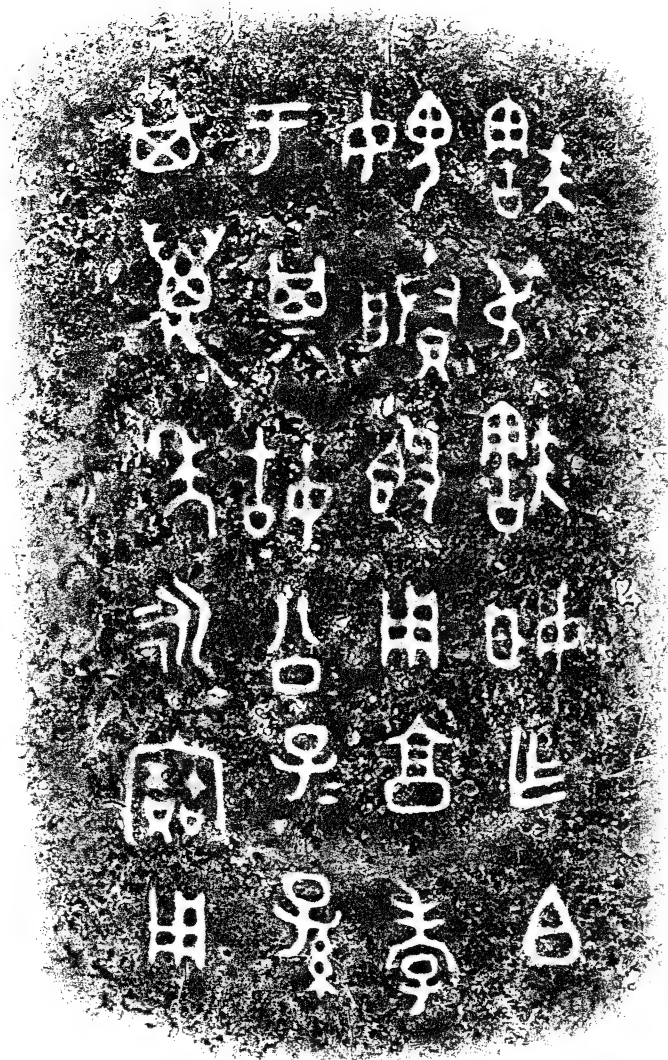 㝬叔㝬姬乍白
媿媵𣪘用享孝
于其姑公子=孫
其萬年永寶用